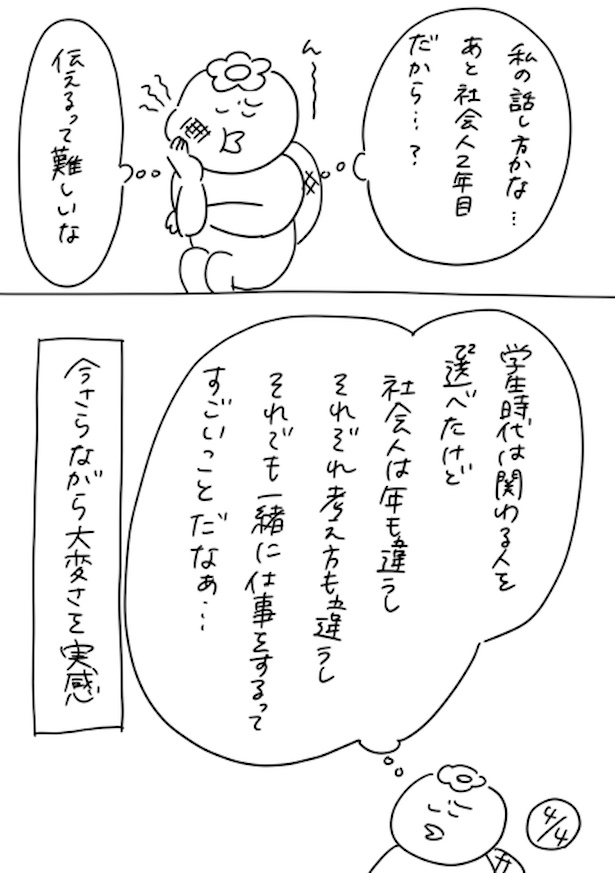 私の話し方かな…
あと社会人2年目
だから…?
ん〜〜
伝えるって難しいな
学生時代は関わる人を
選べたけど
社会人は年も違うし
それぞれ考え方も違うし
それでも一緒に仕事をするって
すごいことだなぁ…
今さらながら大変さを実感
4/4